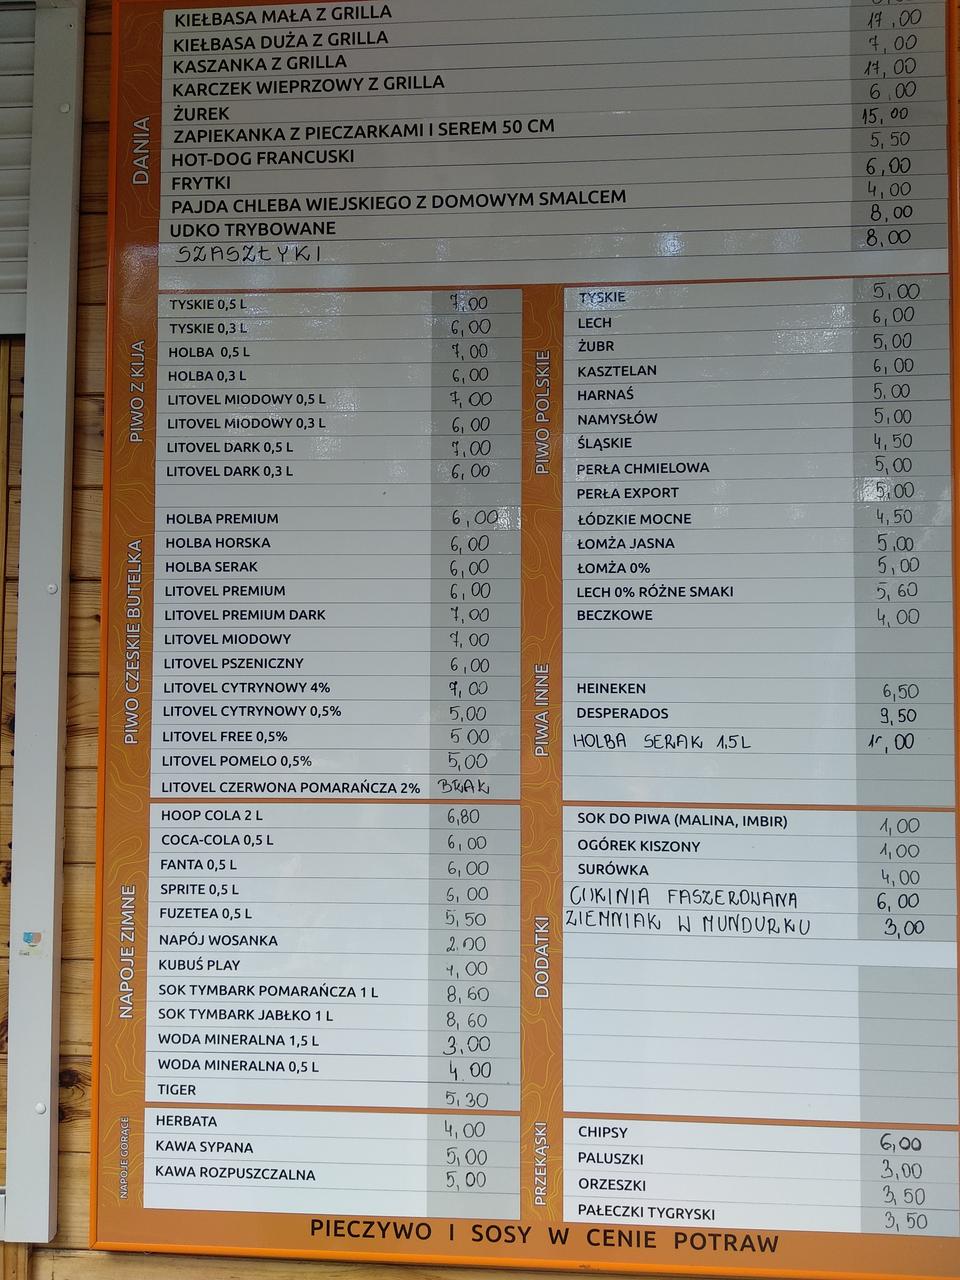 KIEŁBASA MAŁA Z GRILLA
KIEŁBASA DUŻA Z GRILLA 17,00
KASZANKA Z GRILLA 7,00
KARCZEK WIEPRZOWY Z GRILLA 17,00
ŻUREK 6,00
ZAPIEKANKA Z PIECZARKAMI I SEREM 50 CM 15,00
HOT-DOG FRANCUSKI 5,50
FRYTKI 6,00
PAJDA CHLEBA WIEJSKIEGO Z DOMOWYM SMALCEM 4,00
UDKO TRYBOWANE 8,00
SZASZŁYKI 8,00
DANIA
PIWO Z KIJA
TYSKIE 0,5 L 7,00
TYSKIE 0,3 L 6,00
HOLBA 0,5 L 7,00
HOLBA 0,3 L 6,00
LITOVEL MIODOWY 0,5 L 7,00
LITOVEL MIODOWY 0,3 L 6,00
LITOVEL DARK 0,5 L 7,00
LITOVEL DARK 0,3 L 6,00
PIWO CZESKIE BUTELKA
HOLBA PREMIUM 6,00
HOLBA HORSKA 6,00
HOLBA SERAK 6,00
LITOVEL PREMIUM 6,00
LITOVEL PREMIUM DARK 7,00
LITOVEL MIODOWY 7,00
LITOVEL PSZENICZNY 6,00
LITOVEL CYTRYNOWY 4% 7,00
LITOVEL CYTRYNOWY 0,5% 5,00
LITOVEL FREE 0,5% 5 00
LITOVEL POMELO 0,5% 5,00
LITOVEL CZERWONA POMARAŃCZA 2% BRAK
NAPOJE ZIMNE
HOOP COLA 2 L 6,80
COCA-COLA 0,5 L 6,00
FANTA 0,5 L 6,00
SPRITE 0,5 L 6,00
FUZETEA 0,5 L 5,50
NAPÓJ WOSANKA 2.00
KUBUŚ PLAY 4,00
SOK TYMBARK POMARAŃCZA 1 L 8,60
SOK TYMBARK JABŁKO 1 L 8,60
WODA MINERALNA 1,5 L 3,00
WODA MINERALNA 0,5 L 4.00
TIGER 5,30
NAPOJE GORĄCE
HERBATA 4,00
KAWA SYPANA 5,00
KAWA ROZPUSZCZALNA 5,00
PIWO POLSKIE
TYSKIE 5,00
LECH 6,00
ŻUBR 5,00
KASZTELAN 6,00
HARNAŚ 5,00
NAMYSŁÓW 5,00
ŚLĄSKIE 4,50
PERŁA CHMIELOWA 5,00
PERŁA EXPORT 5,00
ŁÓDZKIE MOCNE 4,50
ŁOMŻA JASNA 5,00
ŁOMŻA 0% 5,00
LECH 0% RÓŻNE SMAKI 5,60
BECZKOWE 4,00
PIWA INNE
HEINEKEN 6,50
DESPERADOS 9,50
HOLBA SERAK 1,5L
DODATKI
SOK DO PIWA (MALINA, IMBIR) 1,00
OGÓREK KISZONY 1,00
SURÓWKA 4,00
CUKINIA FASZEROWANA 6,00
ZIEMNIAK W MUNDURKU 3,00
PRZEKĄSKI
CHIPSY 6,00
PALUSZKI 3,00
ORZESZKI 3,50
PAŁECZKI TYGRYSKI 3,50
PIECZYWO I SOSY W CENIE POTRAW